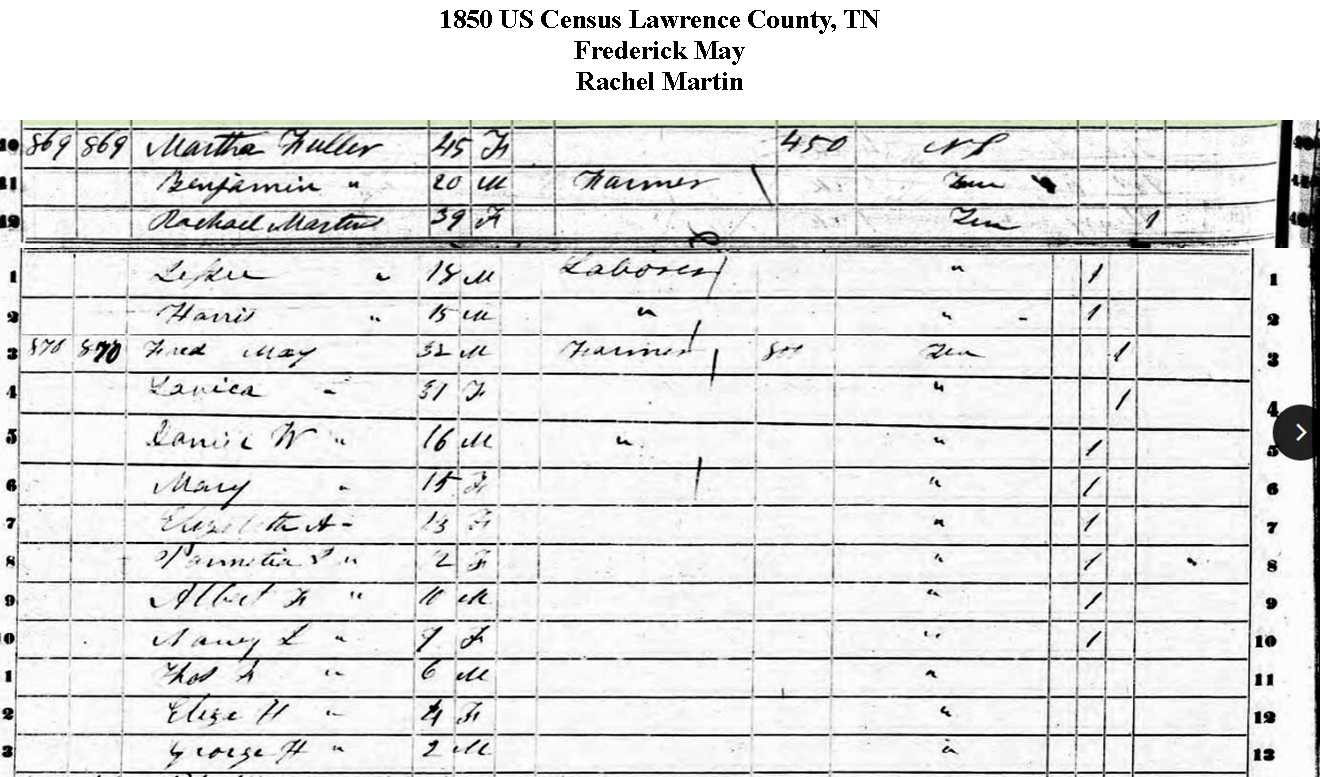 1850 US Census Lawrence County, TN
Frederick May
Rachel Martin
10 869 869 Martha Fuller 45 F 450 NC
11 Benjamin " 20 M Farmer Ten
12 Rachael Martin 39 F Ten 1
1 " 18 M Laborer " 1 1
2 Harris " 15 M " " 1 2
3 870 870 Fred May 32 M Farmer Ten 1 3
4 Lavica " 31 F " 1 4
5 W " 16 M " " 1 5
6 Mary " 15 F " 1 6
7 Elizabeth A " 13 F " 1 7
8 " 12 F " 1 8
9 Albert F " 10 M " 1 9
10 Nancy L " 7 F " 1 10
1 Thos " 6 M " 11
2 Eliza H " 4 F " 12
3 George H " 2 M " 13